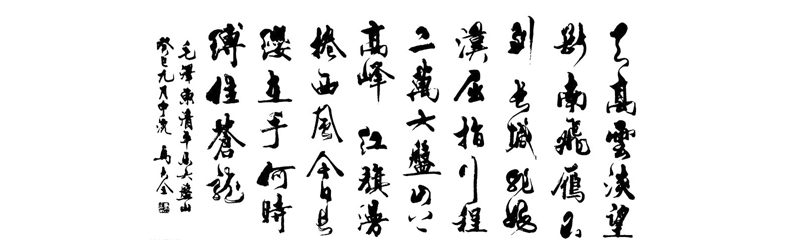 天高雲淡望
斷南飛雁不
到長城非好
漢屈指行程
二萬六盤山上
高峰紅旗漫
捲西風今日長
纓在手何時
縛住蒼龍
毛澤東清平乐六盤山
癸巳九月中浣